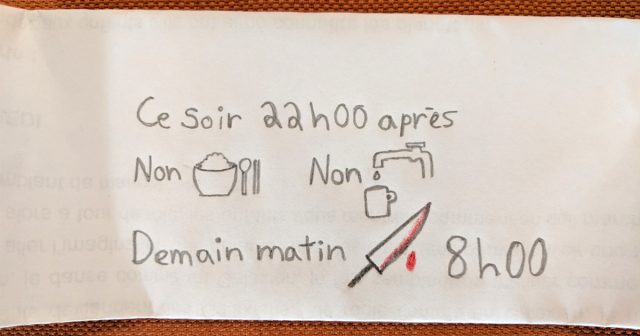 Ce soir 22h00 après
Non Non
Demain matin 8h00